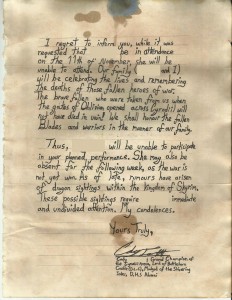 I regret to inform you, while it was
requested that be in attendance
on the 11th of November, she will be
unable to attend. Our family ( and I)
will be celebrating the lives and remembering
the deaths of these fallen heroes of war.
The brave fallen who were taken from us when
the gates of Oblivion opened across Cyrodiil will
not have died in vain! We shall honour the fallen
Blades and warriors in the manner of our family.
Thus, will be unable to participate
in your planned performance. She may also be
absent for the following week, as the war is
not yet won. As of late, rumours have arisen
of dragon sightings within the Kingdom of Skyrim.
These possible sightings require immediate
and undivided attention. My condolences.
Yours Truly,
Grand Champion of